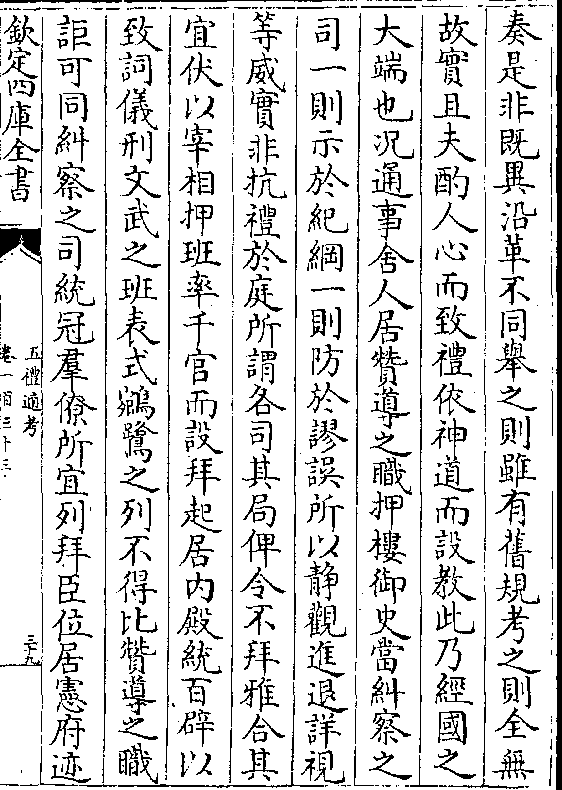 奏是非既異沿革不同舉之則雖有舊規考之則全無
故實且夫酌人心而致禮依神道而設教此乃經國之
大端也况通事舍人居贊導之職押樓御史當糾察之
司一則示於紀綱一則防於謬誤所以静觀進退詳視
等威實非抗禮於庭所謂各司其局俾令不拜雅合其
宜伏以宰相押班率千官而設拜起居内殿統百辟以
致詞儀刑文武之班表式鵷鷺之列不得比贊導之職
詎可同糾察之司統冠羣僚所宜列拜臣位居憲府迹
欽定四庫全書
五禮通考
卷一百三十三
三十九